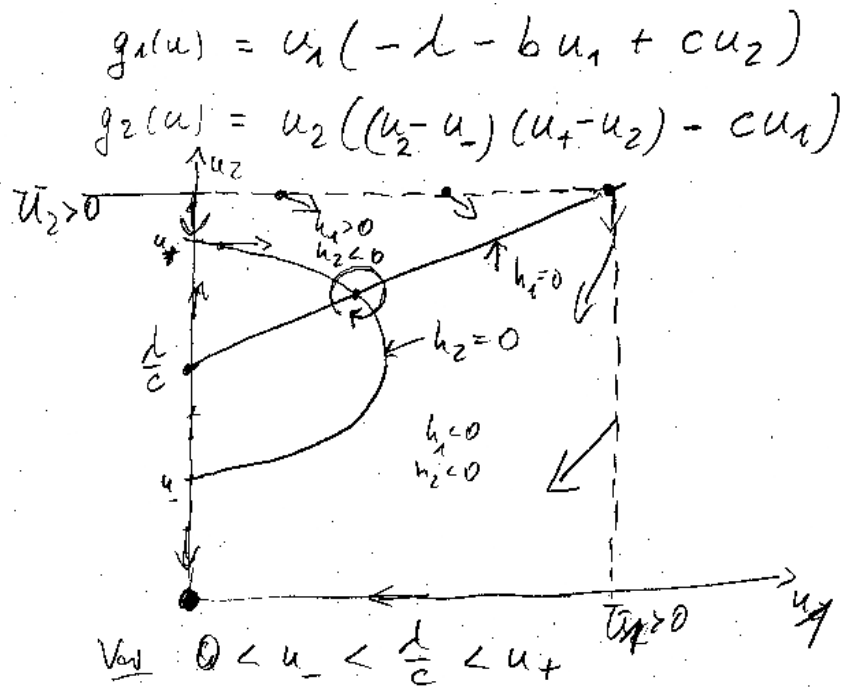 g₁(u) = u₁(-λ - bu₁ + cu₂)
g₂(u) = u₂((u₂-u₋)(u₊-u₂) - cu₁)
u₂
ū₂>0
h₁>0
h₂<0
u₊
h₁=0
λ/c
h₂=0
h₁<0
h₂<0
u₋
ū₁>0
u₁
0 < u₋ < λ/c < u₊